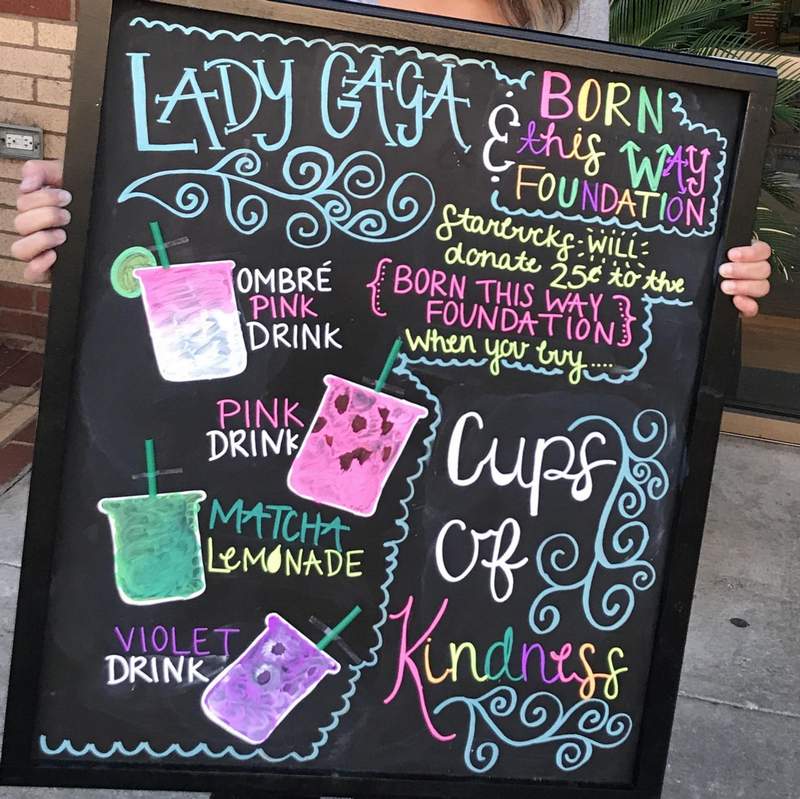 LADY GAGA
& BORN
this WAY
FOUNDATION
Starbucks WILL
donate 25¢ to the
{BORN THIS WAY
FOUNDATION}
when you buy....
OMBRÉ
PINK
DRINK
PINK
DRINK
MATCHA
LEMONADE
VIOLET
DRINK
Cups
Of
Kindness